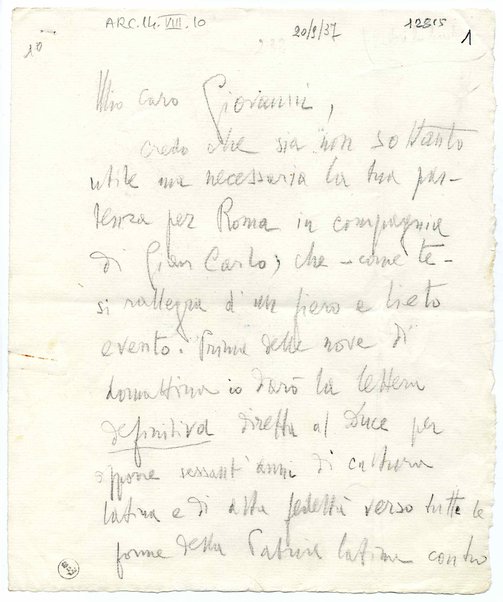 ARC. 14. VIII. 10 20/9/37 12515
1° 1
Mio caro Giovanni,
credo che sia non soltanto
utile ma necessaria la tua par-
tenza per Roma in compagnia
di Gian Carlo, che – come te –
si rallegra d'un fiero e lieto
evento. Prima delle nove di
domattina io darò la lettera
definitiva diretta al Duce per
opporre sessant'anni di cultura
latina e di alta fedeltà verso tutte le
forme della Patria latina contro